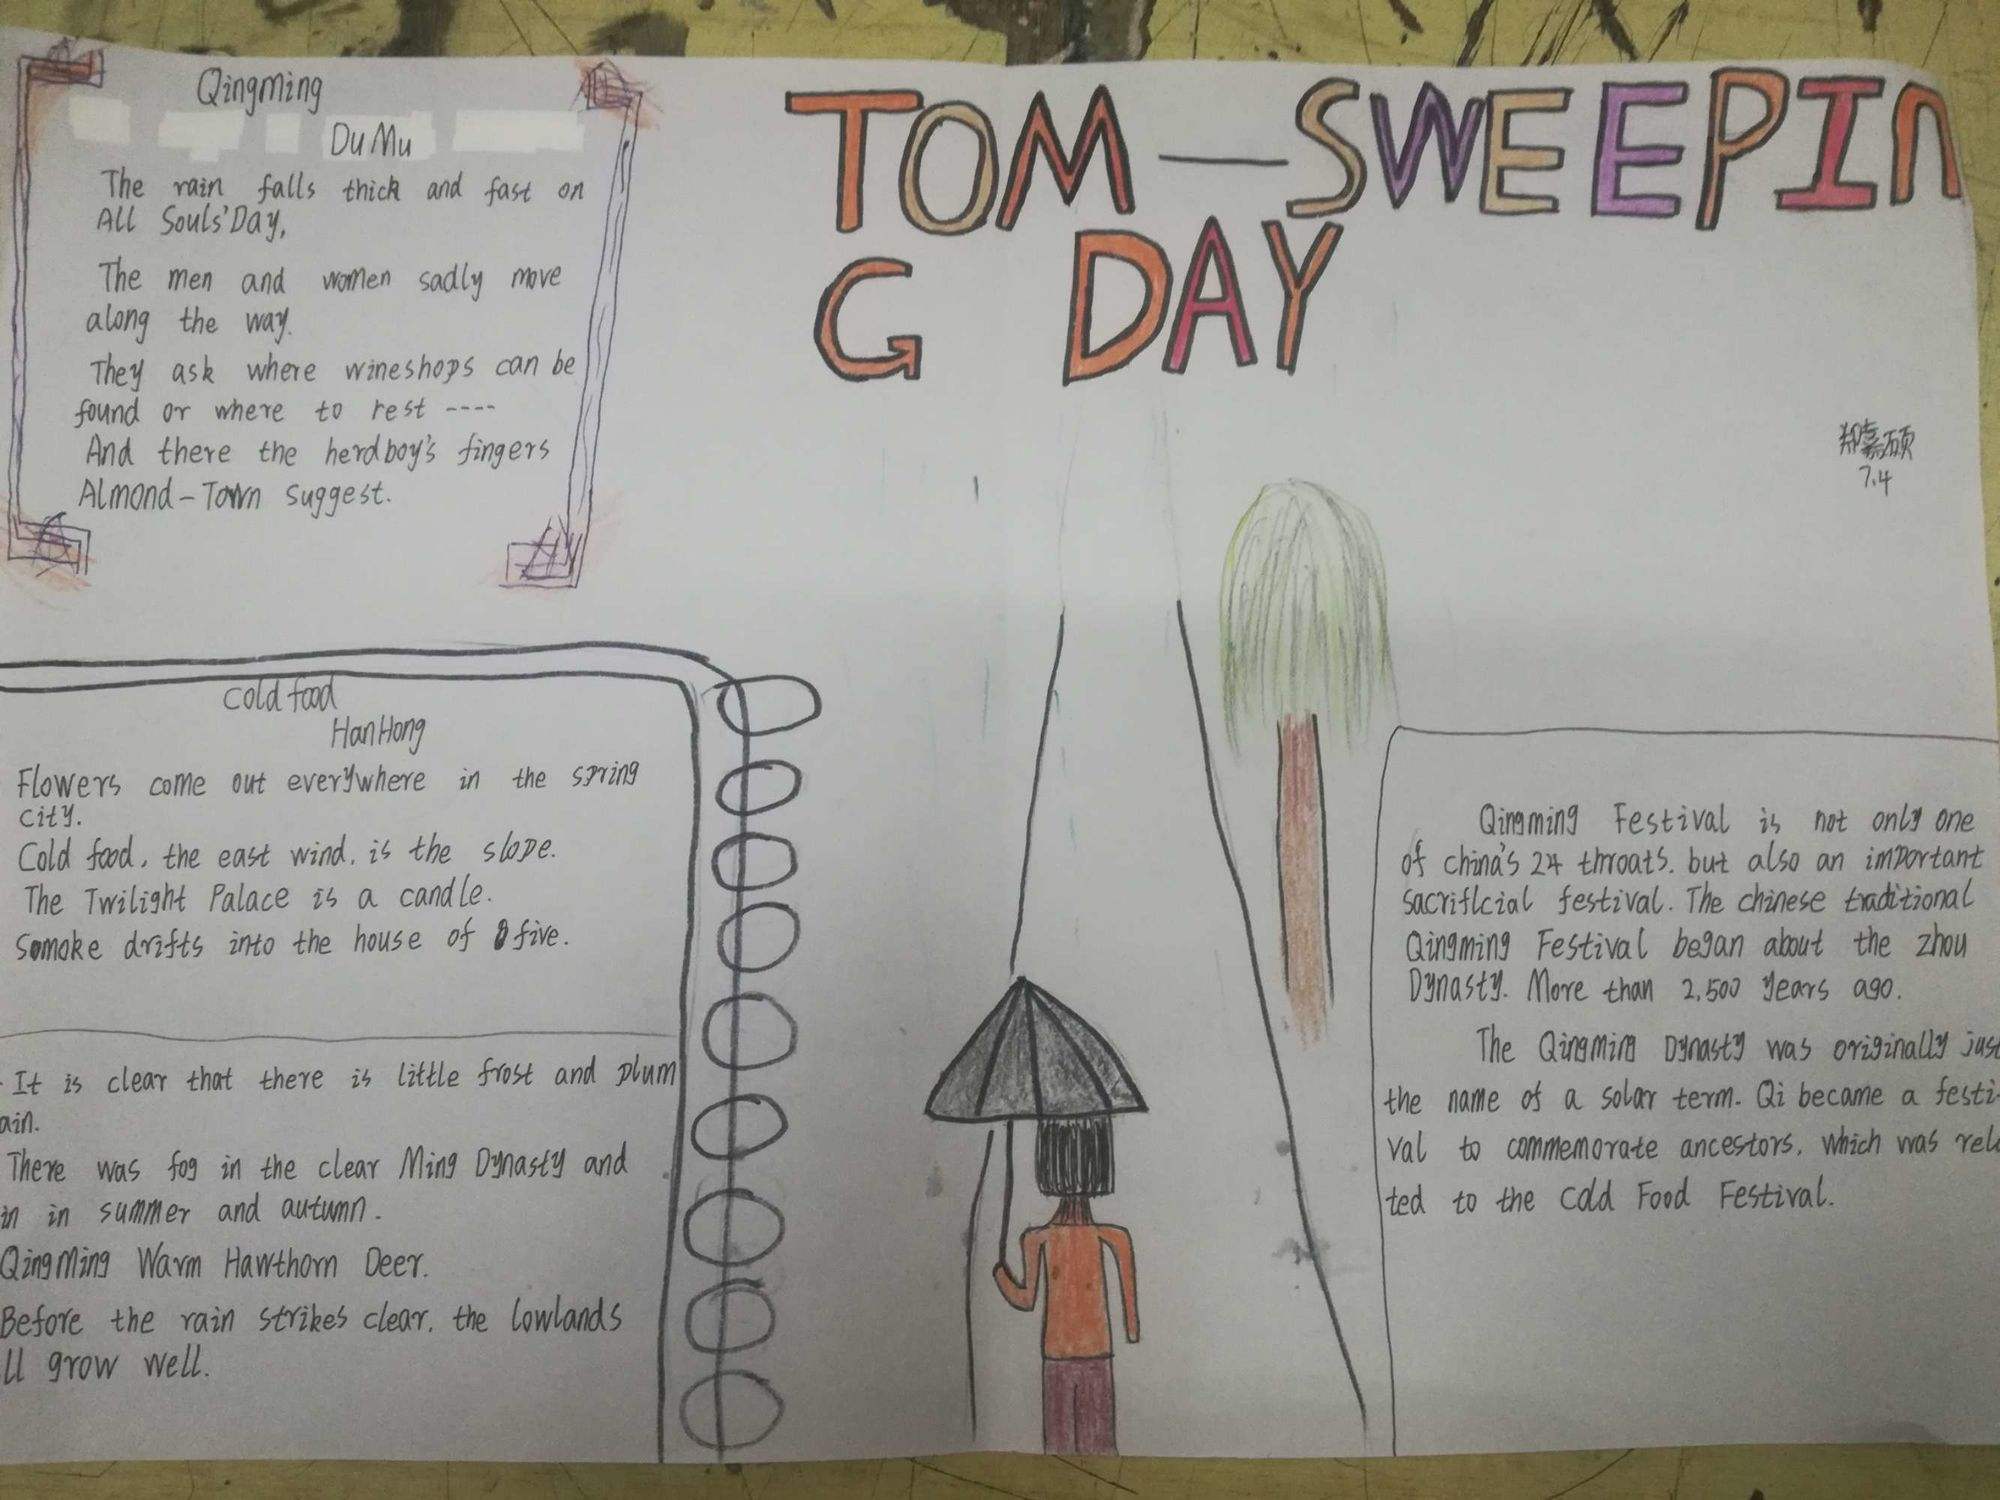 Qingming
Du Mu
The rain falls thick and fast on
All Souls' Day,
The men and women sadly move
along the way.
They ask where wineshops can be
found or where to rest ----
And there the herdboy's fingers
Almond-Town suggest.
TOM—SWEEPIN
G DAY
郑嘉硕
7.4
Cold food
Han Hong
Flowers come out everywhere in the spring
city.
Cold food, the east wind, is the slope.
The Twilight Palace is a candle.
Somoke drifts into the house of five.
It is clear that there is little frost and plum
ain.
There was fog in the clear Ming Dynasty and
in in summer and autumn.
QingMing Warm Hawthorn Deer.
Before the rain strikes clear, the lowlands
ll grow well.
Qingming Festival is not only one
of china's 24 throats, but also an important
sacriflcial festival. The chinese traditional
Qingming Festival began about the zhou
Dynasty. More than 2,500 years ago.
The QingMing Dynasty was originally just
the name of a solar term. Qi became a festi-
val to commemorate ancestors, which was rela
ted to the Cold Food Festival.